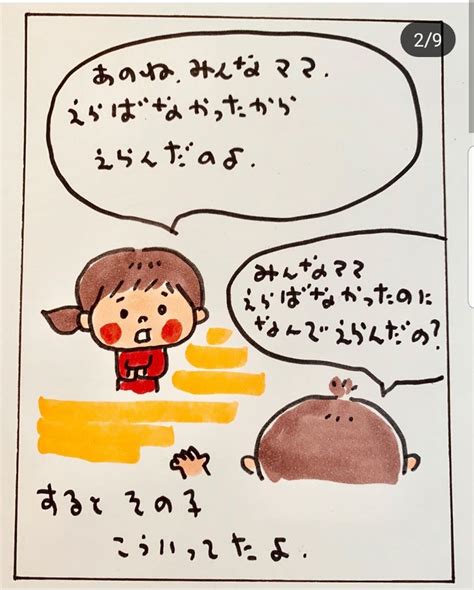 2/9
あのね、みんなママ、
えらばなかったから
えらんだのよ。
みんなママ
えらばなかったのに
なんでえらんだの?
すると その子
こういってたよ。